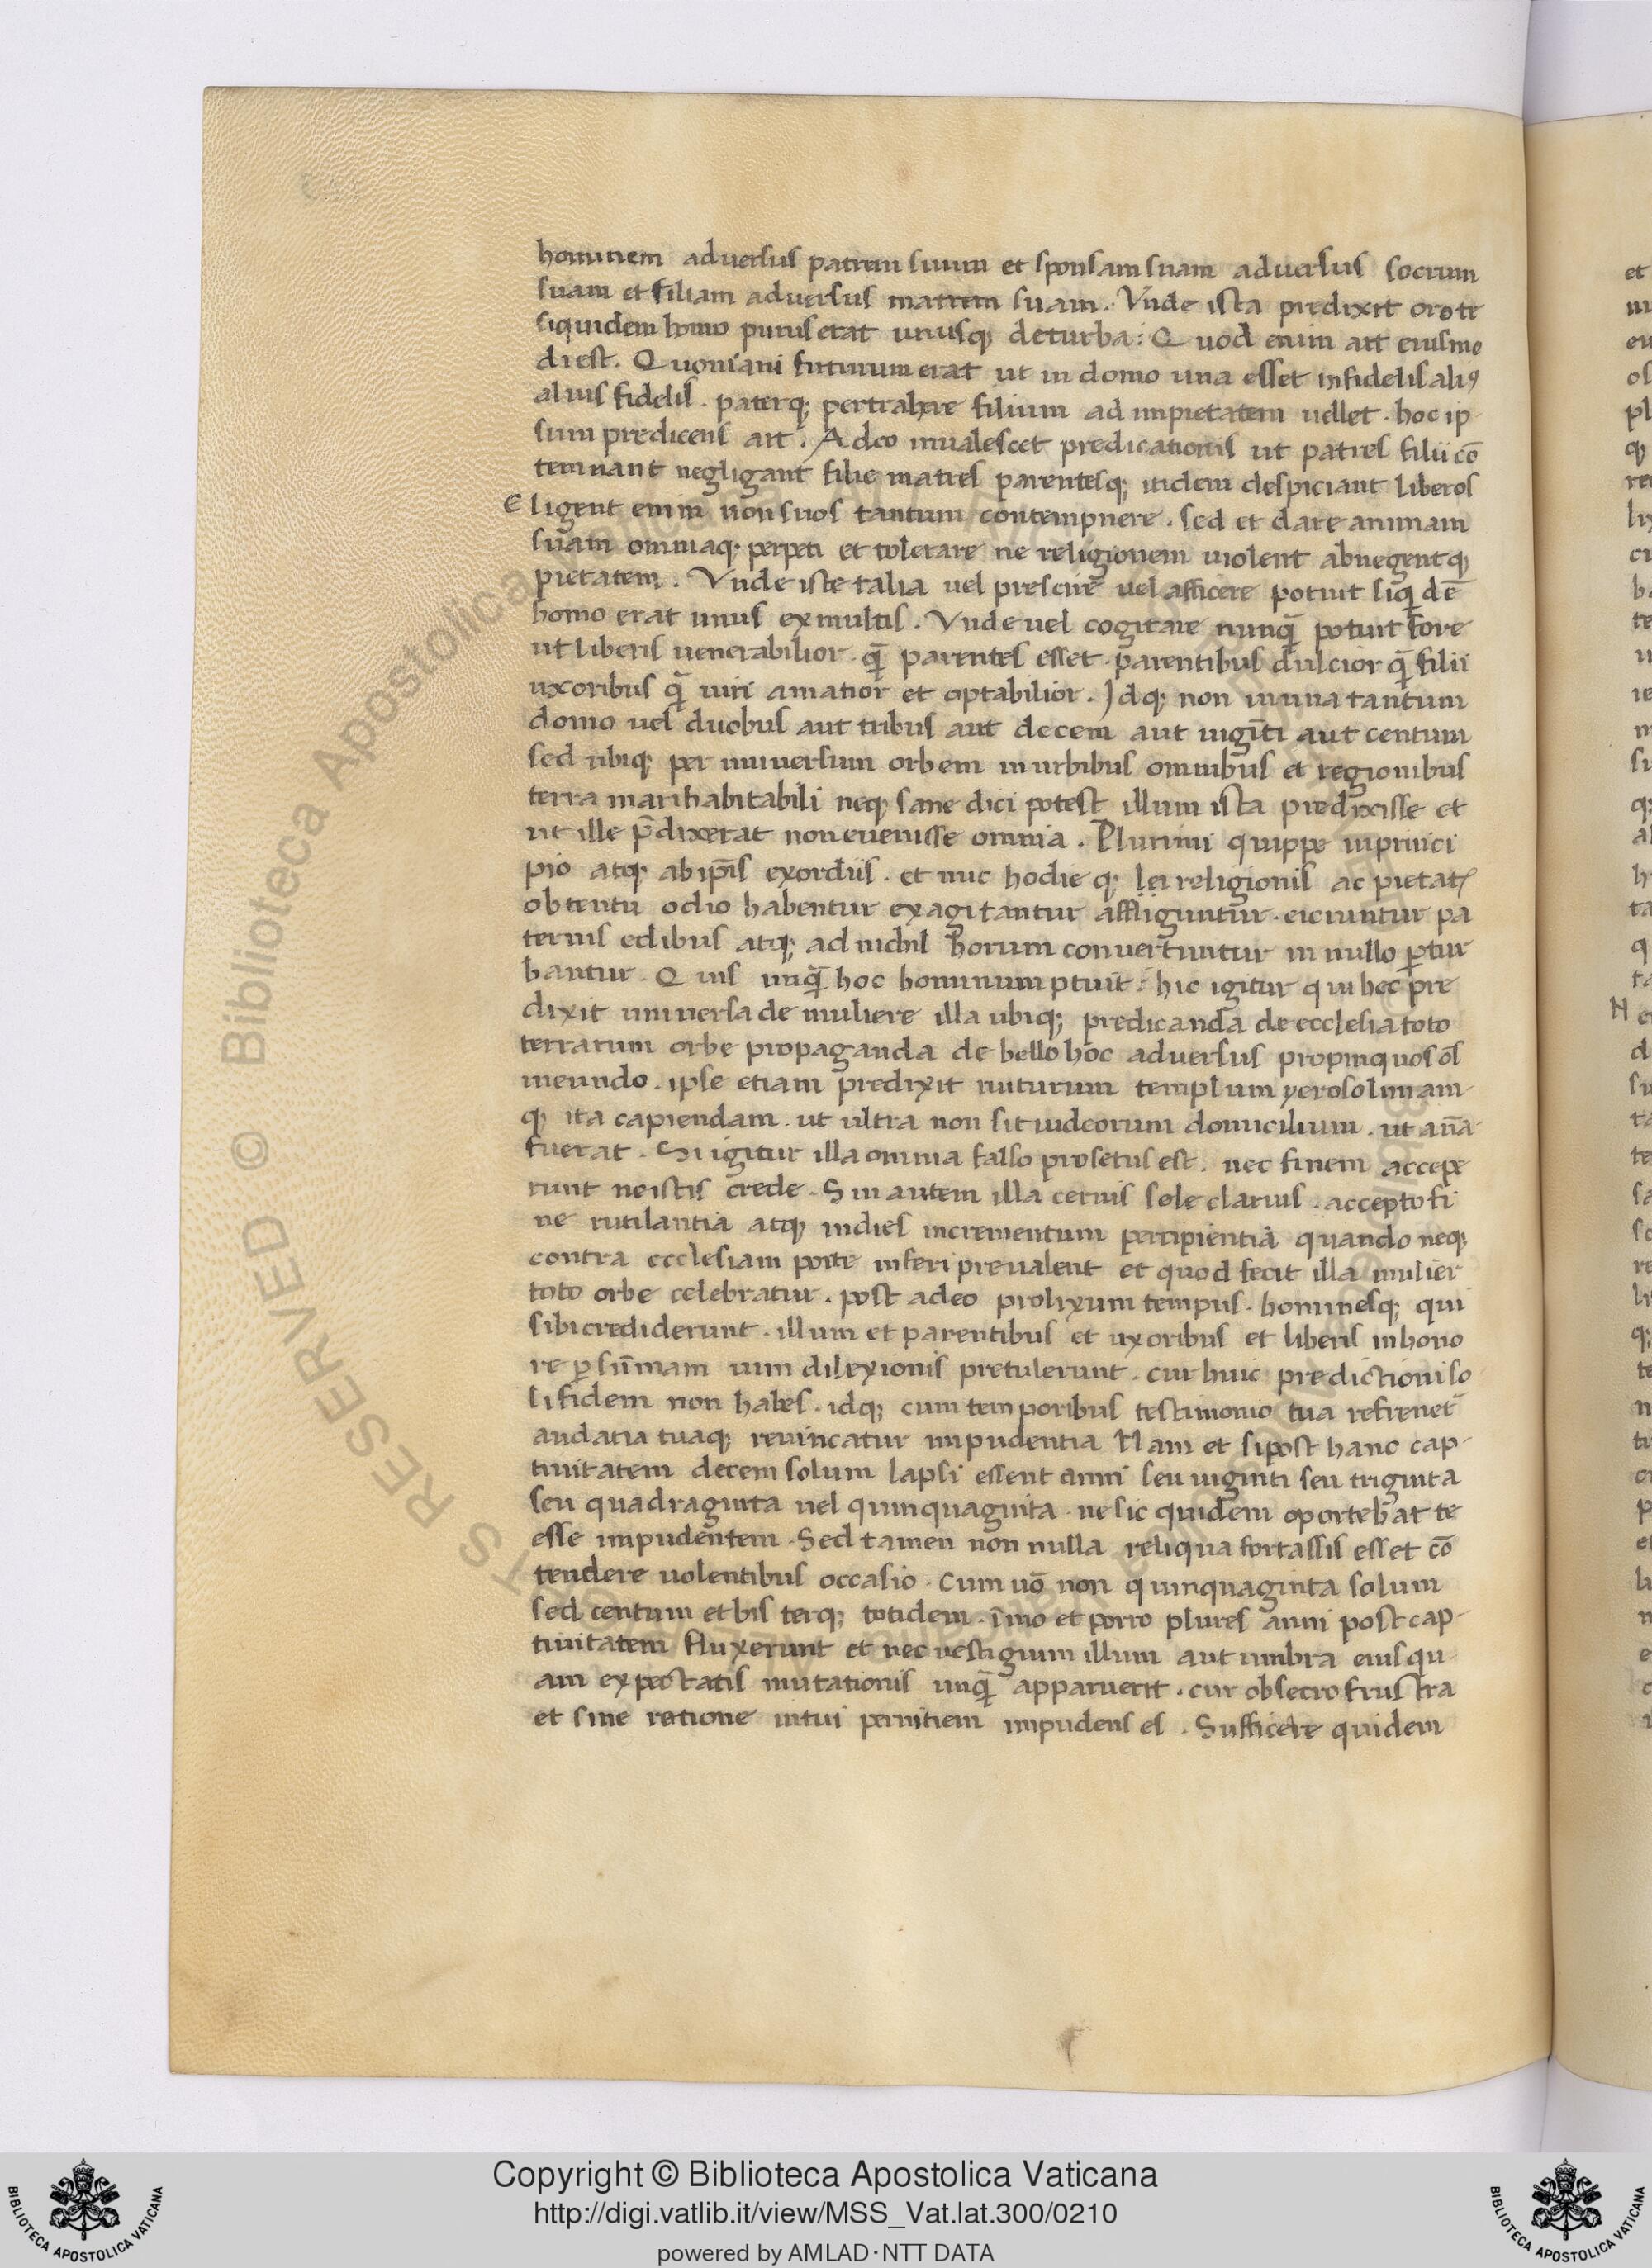 hominem aduersus patrem suum et sponsam suam aduersus socrum
suam et filiam aduersus matrem suam. Vnde ista predixit oro te
siquidem homo purus erat unusq; de turba: Quod enim ait eiusmo
di est. Quoniam futurum erat ut in domo una esset infidelis aliꝰ
alius fidelis. paterq; pertrahere filium ad impietatem uellet. hoc ip
sum predicens ait. Adeo inualescet predicationis ut patres filii cō
temnant negligant filie matres parentesq; itidem despiciant liberos
Eligent enim non suos tantum contempnere. sed et dare animam
suam omniaq; perpeti et tolerare ne religionem uiolent abnegentq;
pietatem. Vnde iste talia uel prescire uel afficere potuit siqdē
homo erat unus ex multis. Vnde uel cogitare nunq̄ potuit fore
ut liberis uenerabilior. q̄ parentes esset. parentibus dulcior q̄ filii
uxoribus q̄ uiri amatior et optabilior. Idq; non in una tantum
domo uel duobus aut tribus aut decem aut uigīti aut centum
sed ubiq; per uniuersum orbem in urbibus omnibus et regionibus
terra marihabitabili neq; sane dici potest illum ista predixisse et
ut ille p̄dixerat non euenisse omnia. Plurimi quippe in princi
pio atq; ab ip̄is exordiis. et nuc hodie q; lei religionis ac pietat
obtentu odio habentur exagitantur affliguntur. eiciuntur pa
ternis edibus atq; ad nichil horum conuertuntur in nullo ꝑtur
bantur. Quis unq̄ hoc hominum ptuit: hic igitur qui hec pre
dixit uniuersa de muliere illa ubiq; predicanda de ecclesia toto
terrarum orbe propaganda de bello hoc aduersus propinquos oīs
ineundo. ipse etiam predixit ruiturum templum yerosolimam
q; ita capiendam. ut ultra non sit iudeorum domicilium. ut an̄a
fuerat. Si igitur illa omnia falso profetus est. nec finem accepe
runt ne istis crede. Sin autem illa cernis sole clarius. accepto fi
ne rutilantia atq; indies incrementum percipientia quando neq;
contra ecclesiam porte inferi preualent et quod fecit illa mulier
toto orbe celebratur. post adeo prolixum tempus. hominesq; qui
sibi crediderunt. illum et parentibus et uxoribus et liberis in hono
re ꝑ sūmam uim dilexionis pretulerunt. cur huic predictioni so
li fidem non habes. idq; cum temporibus testimonio tua refrenet
audatia tuaq; reuincatur impudentia Nam et si post hanc cap
tiuitatem decem solum lapsi essent anni seu uiginti seu triginta
seu quadraginta uel quinquaginta. ne sic quidem oportebat te
esse impudentem. Sed tamen non nulla reliqua fortassis esset cō
tendere uolentibus occasio. cum uō non quinquaginta solum
sed centum et bis terq; totidem. īmo et porro plures anni post cap
tiuitatem fluxerunt et nec uestigium illum aut umbra eius qu
am expectatis mutationis unq̄ apparuerit. cur obsecro frustra
et sine ratione in tui pernitiem impudens es. Sufficere quidem
Copyright © Biblioteca Apostolica Vaticana
http://digi.vatlib.it/view/MSS_Vat.lat.300/0210
powered by AMLAD·NTT DATA
BIBLIOTECA APOSTOLICA VATICANA
BIBLIOTECA APOSTOLICA VATICANA